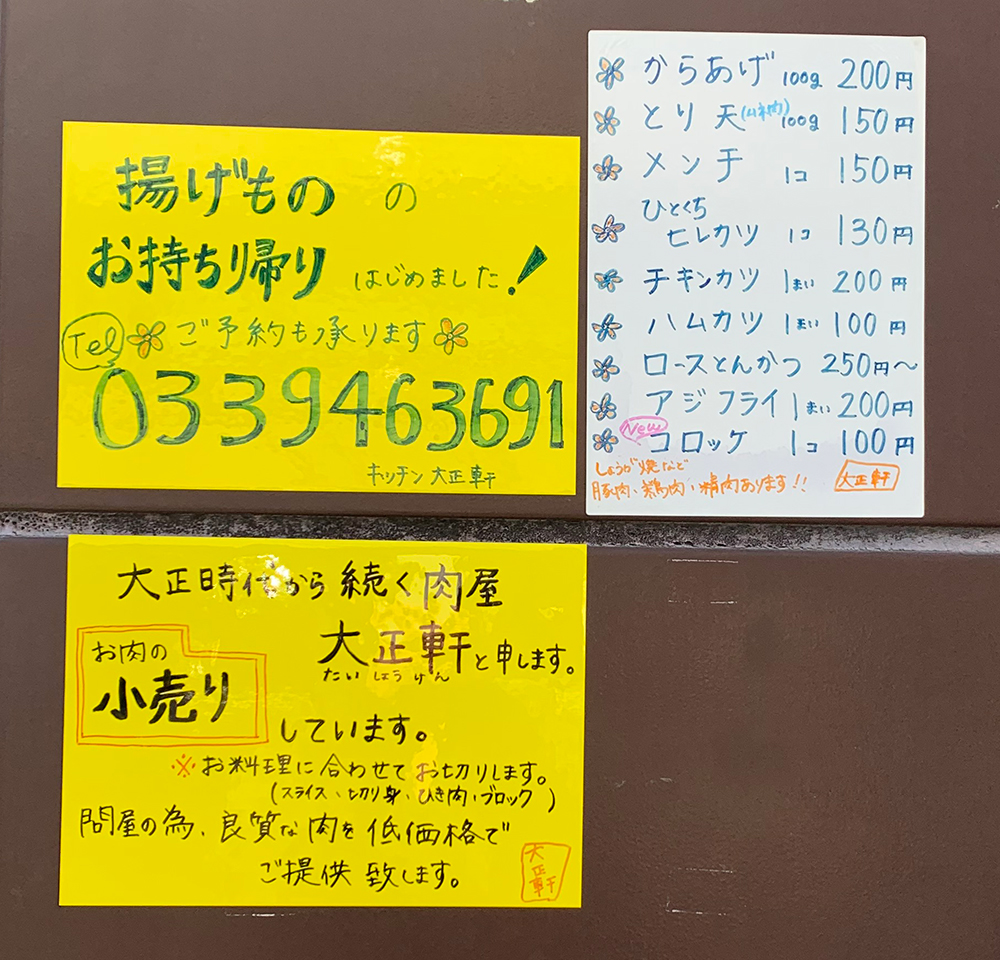 揚げもの の
お持ち帰り はじめました!
Tel ご予約も承ります
0339463691
キッチン 大正軒
からあげ 100g 200円
とり天(ムネ肉) 100g 150円
メンチ 1コ 150円
ひとくち
ヒレカツ 1コ 130円
チキンカツ 1まい 200円
ハムカツ 1まい 100円
ロースとんかつ 250円〜
アジフライ 1まい 200円
New
コロッケ 1コ 100円
しょうが焼など
豚肉、鶏肉、精肉あります!!
大正軒
大正時代から続く肉屋
大正軒と申します。
たいしょうけん
お肉の
小売り
しています。
※お料理に合わせてお切りします。
(スライス、切り身、ひき肉、ブロック)
問屋の為、良質な肉を低価格で
ご提供致します。
大正軒